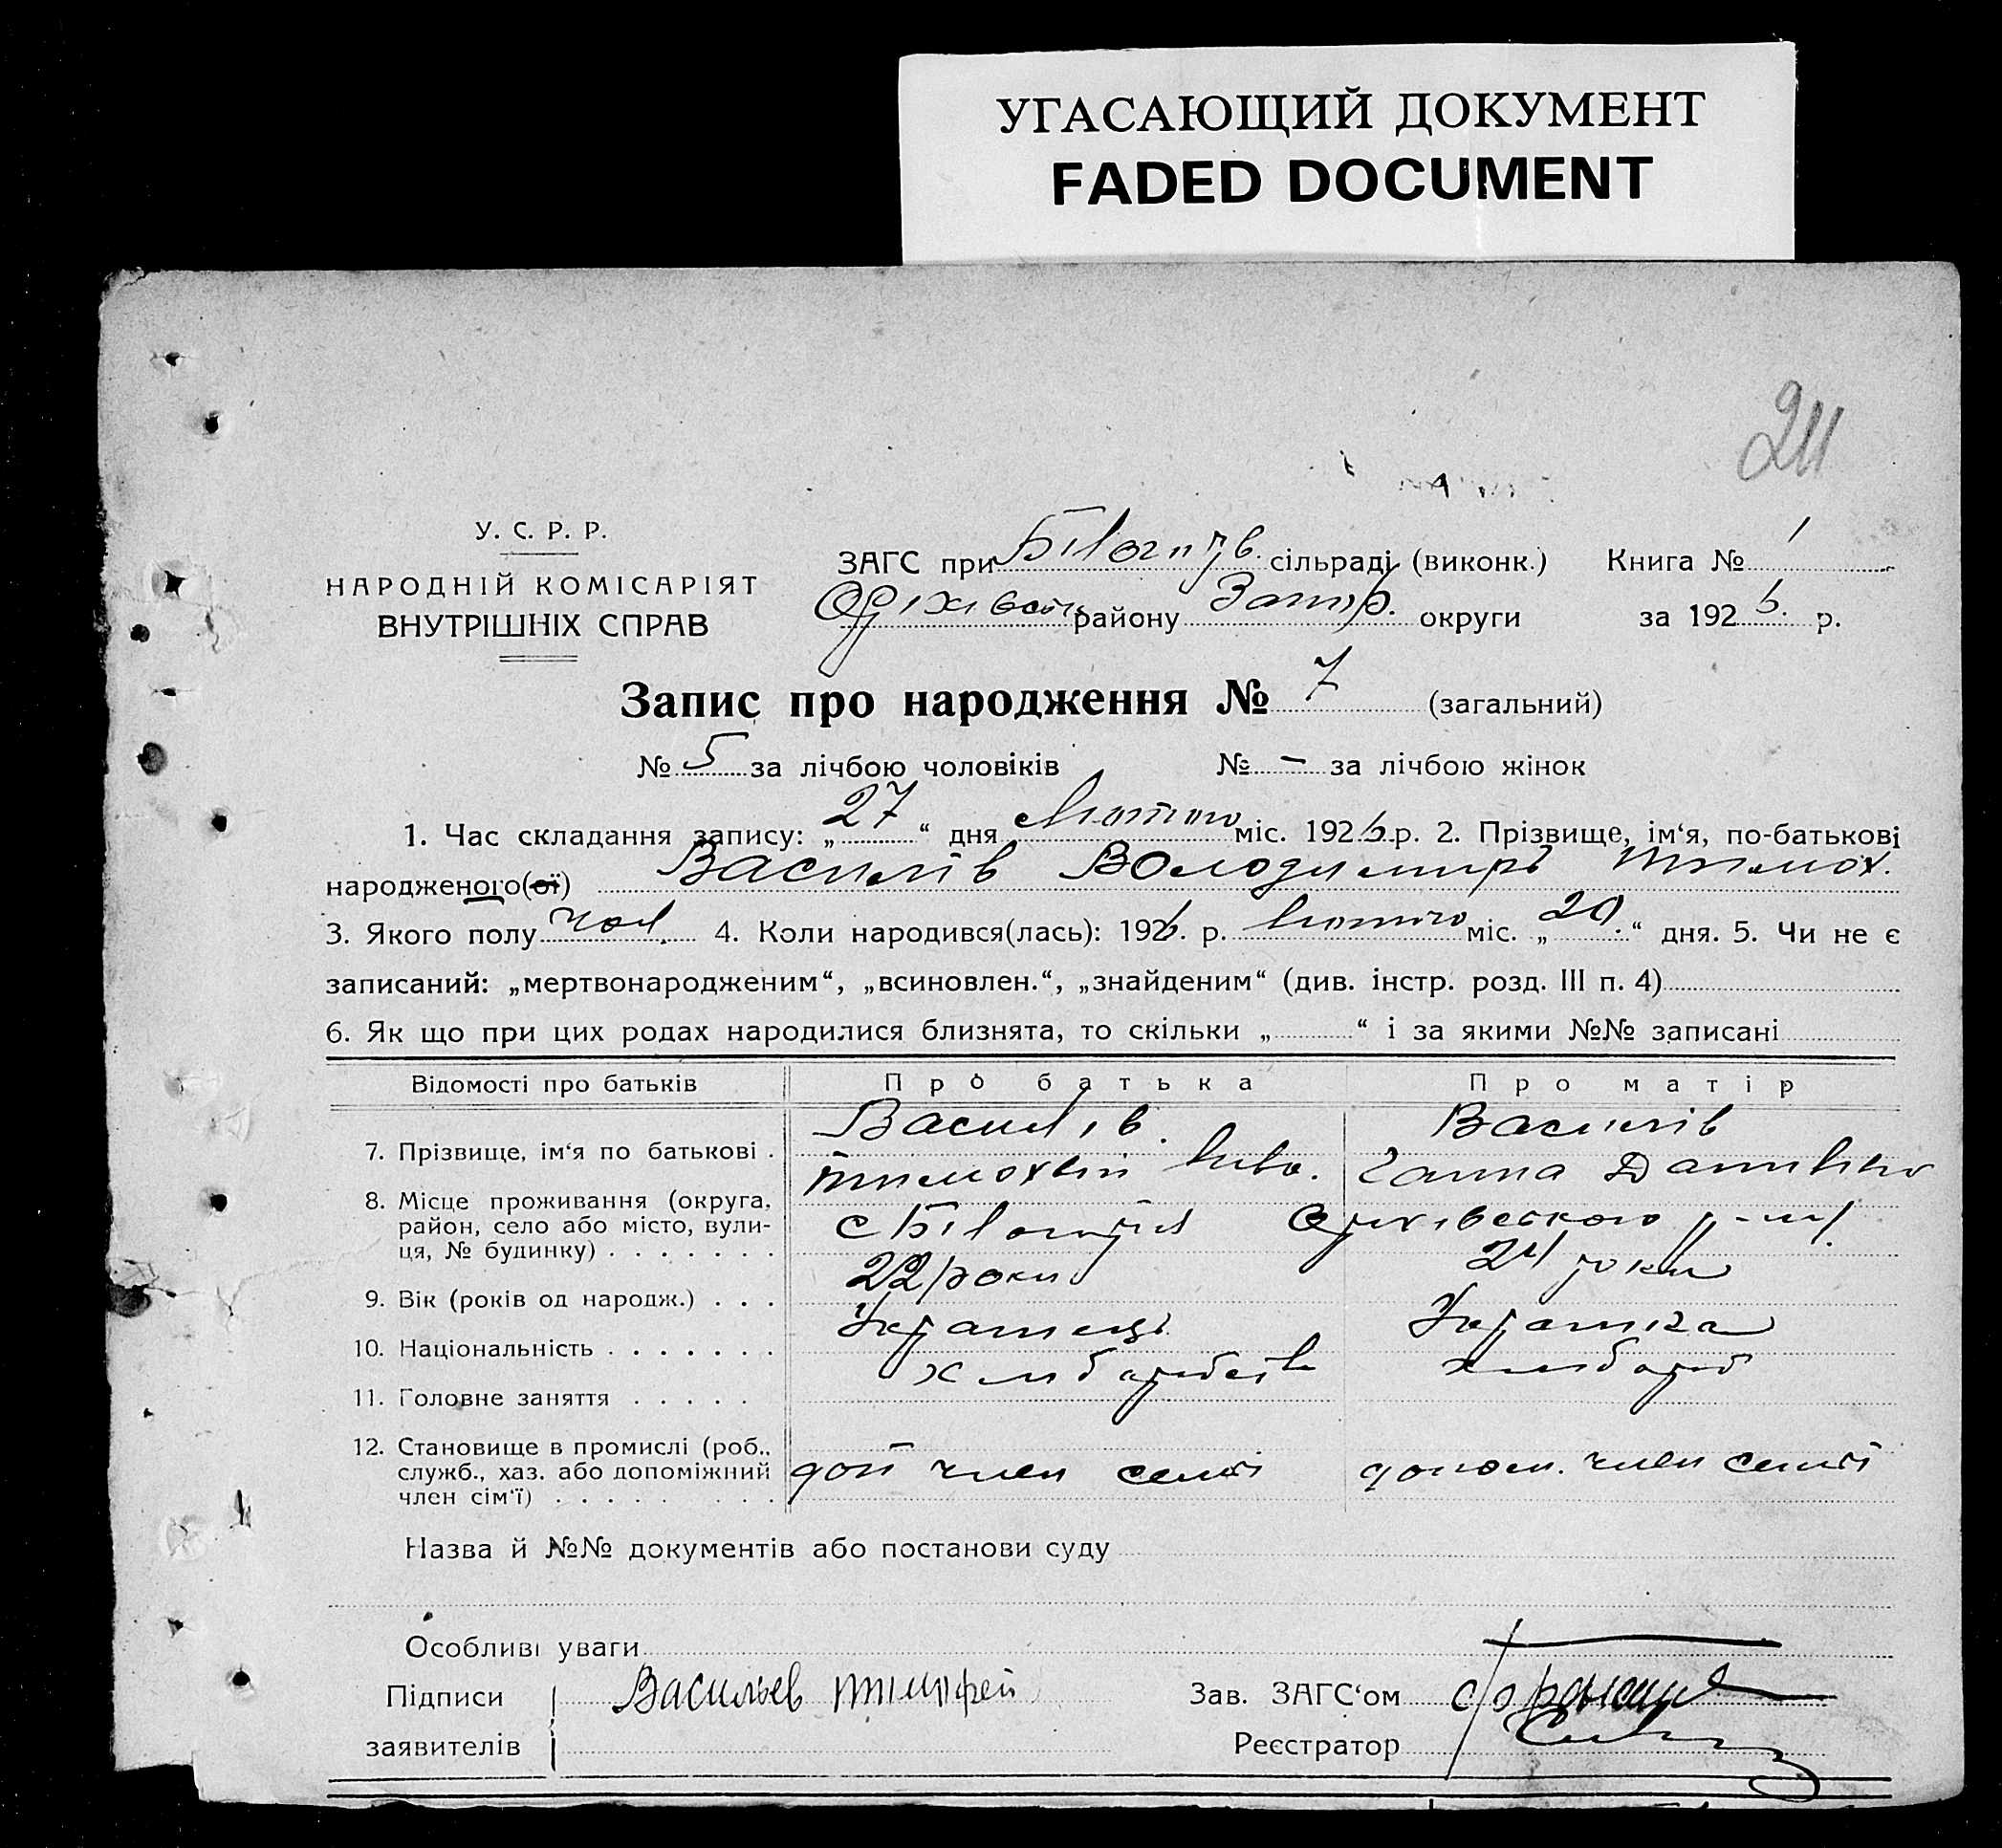 УГАСАЮЩИЙ ДОКУМЕНТ
FADED DOCUMENT
211
У. С. Р. Р.
НАРОДНІЙ КОМІСАРІЯТ
ВНУТРІШНІХ СПРАВ
ЗАГС при сільраді (виконк.) Книга № 1
району Запор. округи за 1926. р.
Запис про народження № 7 (загальний)
№ 5 за лічбою чоловіків № – за лічбою жінок
1. Час складання запису: „ 27 “ дня Лютого міс. 1926 р. 2. Прізвище, ім‘я, по-батькові
народженого(ої) Василів Володимиръ Тимох.
3. Якого полу Чол. 4. Коли народився(лась): 1926. р. Лютого міс. „ 20. “ дня. 5. Чи не є
записаний: „мертвонародженим“, „всиновлен.“, „знайденим“ (див. інстр. розд. III п. 4)
6. Як що при цих родах народилися близнята, то скільки „ “ і за якими №№ записані
Відомості про батьків Про батька Про матір
7. Прізвище, ім‘я по батькові . Василів. Василів
Тимохвій Ганна
8. Місце проживання (округа, район, село або місто, вулиця, № будинку) . . . . . . . с Оріхівського р-ну.
9. Вік (років од народж.) . . . 22 роки 24 роки
10. Національність . . . . . . . Українець Українка
11. Головне заняття . . . . . хлібороб
12. Становище в промислі (роб., служб., хаз. або допоміжний член сім‘ї) . . . . . . . . доп член семї допом. член семї
Назва й №№ документів або постанови суду
Особливі уваги
Підписи Васильев Тимофей Зав. ЗАГС‘ом
заявителів Реєстратор